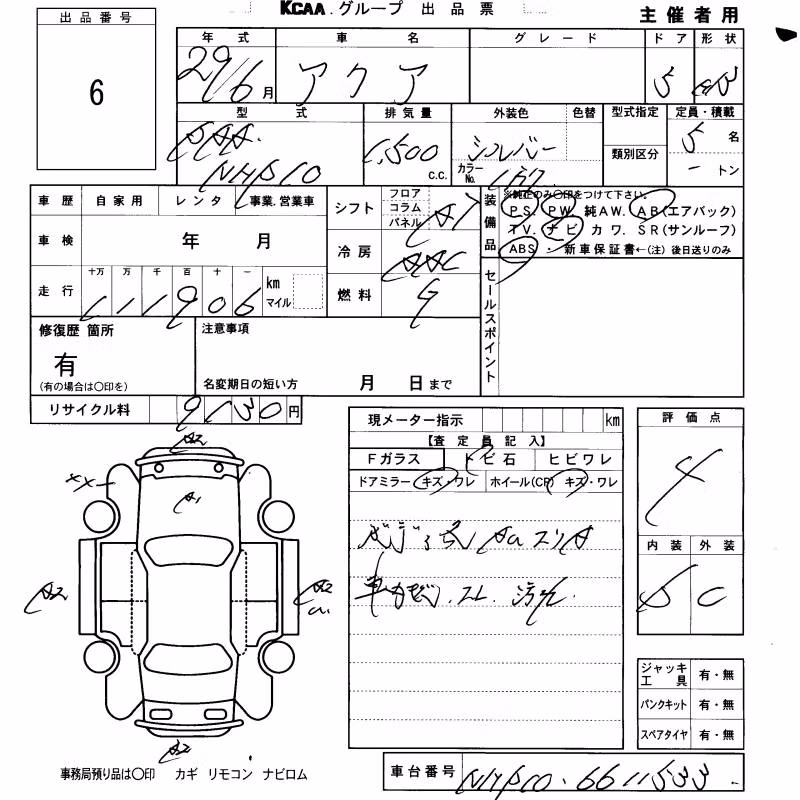 KCAA.グループ 出品票
主催者用
出品番号
6
年式 車名 グレード ドア 形状
29/6月 アクア 5
型式 排気量 外装色 色替 型式指定 定員・積載
DAA-NHP10 1,500 c.c. シルバー カラーNo. 1F7 類別区分 5名
－トン
車歴 自家用 レンタ 事業.営業車
シフト フロア コラム パネル AT
装備品 ※純正のみ〇印をつけて下さい。
PS. PW. 純AW. AB(エアバック)
TV. ナビ カワ. SR(サンルーフ)
ABS・新車保証書←(注) 後日送りのみ
車検 年 月
冷房 AAC
走行 十万 万 千 百 十 一 km マイル
111906
燃料 G
セールスポイント
修復歴 箇所
有
(有の場合は〇印を)
注意事項
名変期日の短い方 月 日まで
リサイクル料 9130円
現メーター指示 km
【査定員記入】
Fガラス トビ石 ヒビワレ
ドアミラー キズ・ワレ ホイール(CP) キズ・ワレ
スリキ
車カビ. スレ. 汚れ.
評価点
4
内装 外装
D C
A2
××
A1
A2
A2
A2
ジャッキ工具 有・無
パンクキット 有・無
スペアタイヤ 有・無
事務局預り品は〇印 カギ リモコン ナビロム
車台番号 NHP10-6611533